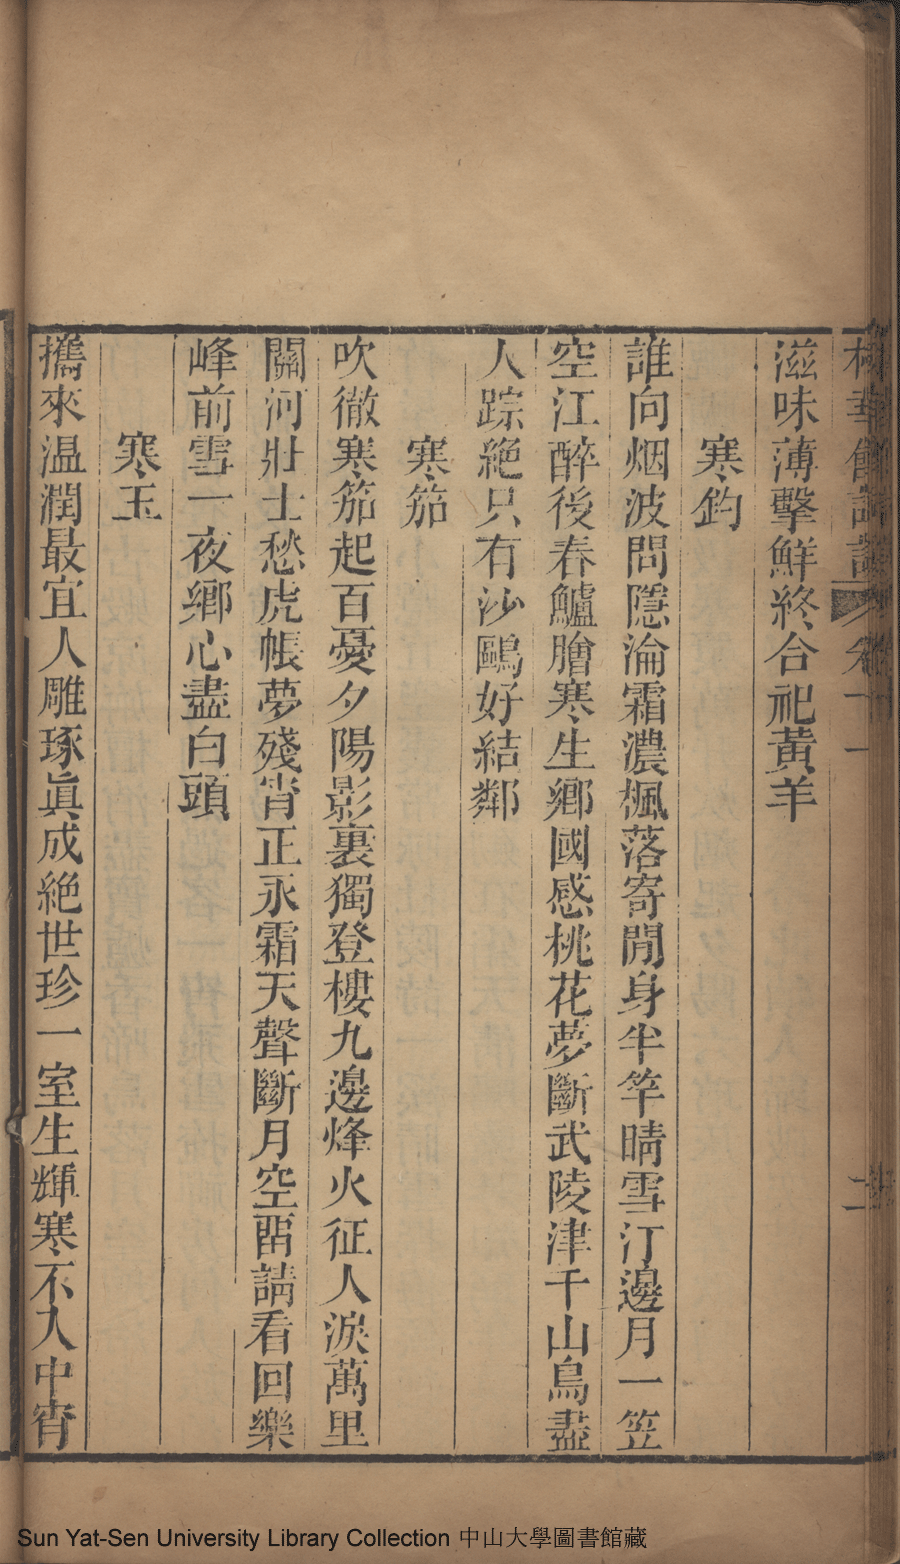 滋味薄擊鮮終合祀黃羊
寒釣
誰向烟波問隱淪霜濃楓落寄閒身半竿晴雪汀邊月一笠
空江醉後春鱸膾寒生鄉國感桃花夢斷武陵津千山鳥盡
人踪絶只有沙鷗好結鄰
寒笳
吹徹寒笳起百憂夕陽影裏獨登樓九邊烽火征人淚萬里
關河壯士愁虎帳夢殘宵正永霜天聲斷月空畱請看回樂
峰前雪一夜鄉心盡白頭
寒玉
攜來温潤最宜人雕琢眞成絶世珍一室生輝寒不入中宵
Sun Yat-Sen University Library Collection 中山大學圖書館藏